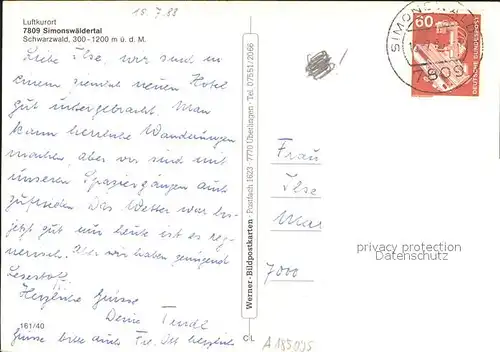 15.7.88
Luftkurort
7809 Simonswäldertal
Schwarzwald, 300-1200 m ü. d. M.
Liebe Ilse, wir sind in
einem ziemlich neuen Hotel
gut untergebracht. Man
kann herrliche Wanderungen
machen, aber wir sind mit
unseren Spaziergängen auch
zufrieden. Das Wetter war bis
jetzt gut nur heute ist es reg-
nerisch. Aber wir haben genügend
Lesestoff.
Herzliche Grüsse
Deine Trudl
Grüsse bitte auch herzlich
161/40
Werner-Bildpostkarten · Postfach 1623 · 7770 Überlingen · Tel. 07551/2066
CL
SIMONSWALD
7809
60
DEUTSCHE BUNDESPOST
Frau
Ilse
Mai
7000
privacy protection
Datenschutz
A185095